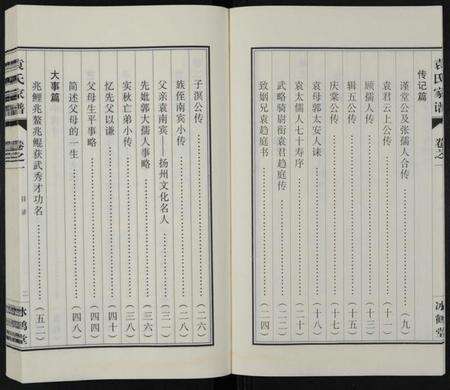 袁氏家谱 卷之一
冰鹤堂
传记篇
谨堂公及张孺人合传……(九)
袁君云上公传……(十一)
顾孺人传……(十三)
辑五公传……(十五)
庆棠公传……(十七)
袁母郭太安人诔……(十八)
袁太儒人七十寿序……(二十)
武略骑尉衔袁君趋庭传……(二二)
致姻兄袁趋庭书……(二四)
子溟公传……(二六)
族侄南宾小传……(二八)
父亲袁南宾——扬州文化名人……(三一)
先妣郭大孺人事略……(三六)
实秋亡弟小传……(三八)
忆先父以谦……(四十)
父母生平事略……(四四)
简述父母的一生……(四八)
大事篇
兆鲤兆鳌兆鲲获武秀才功名……(五二)
袁氏家谱 卷之一
目录
二
冰鹤堂